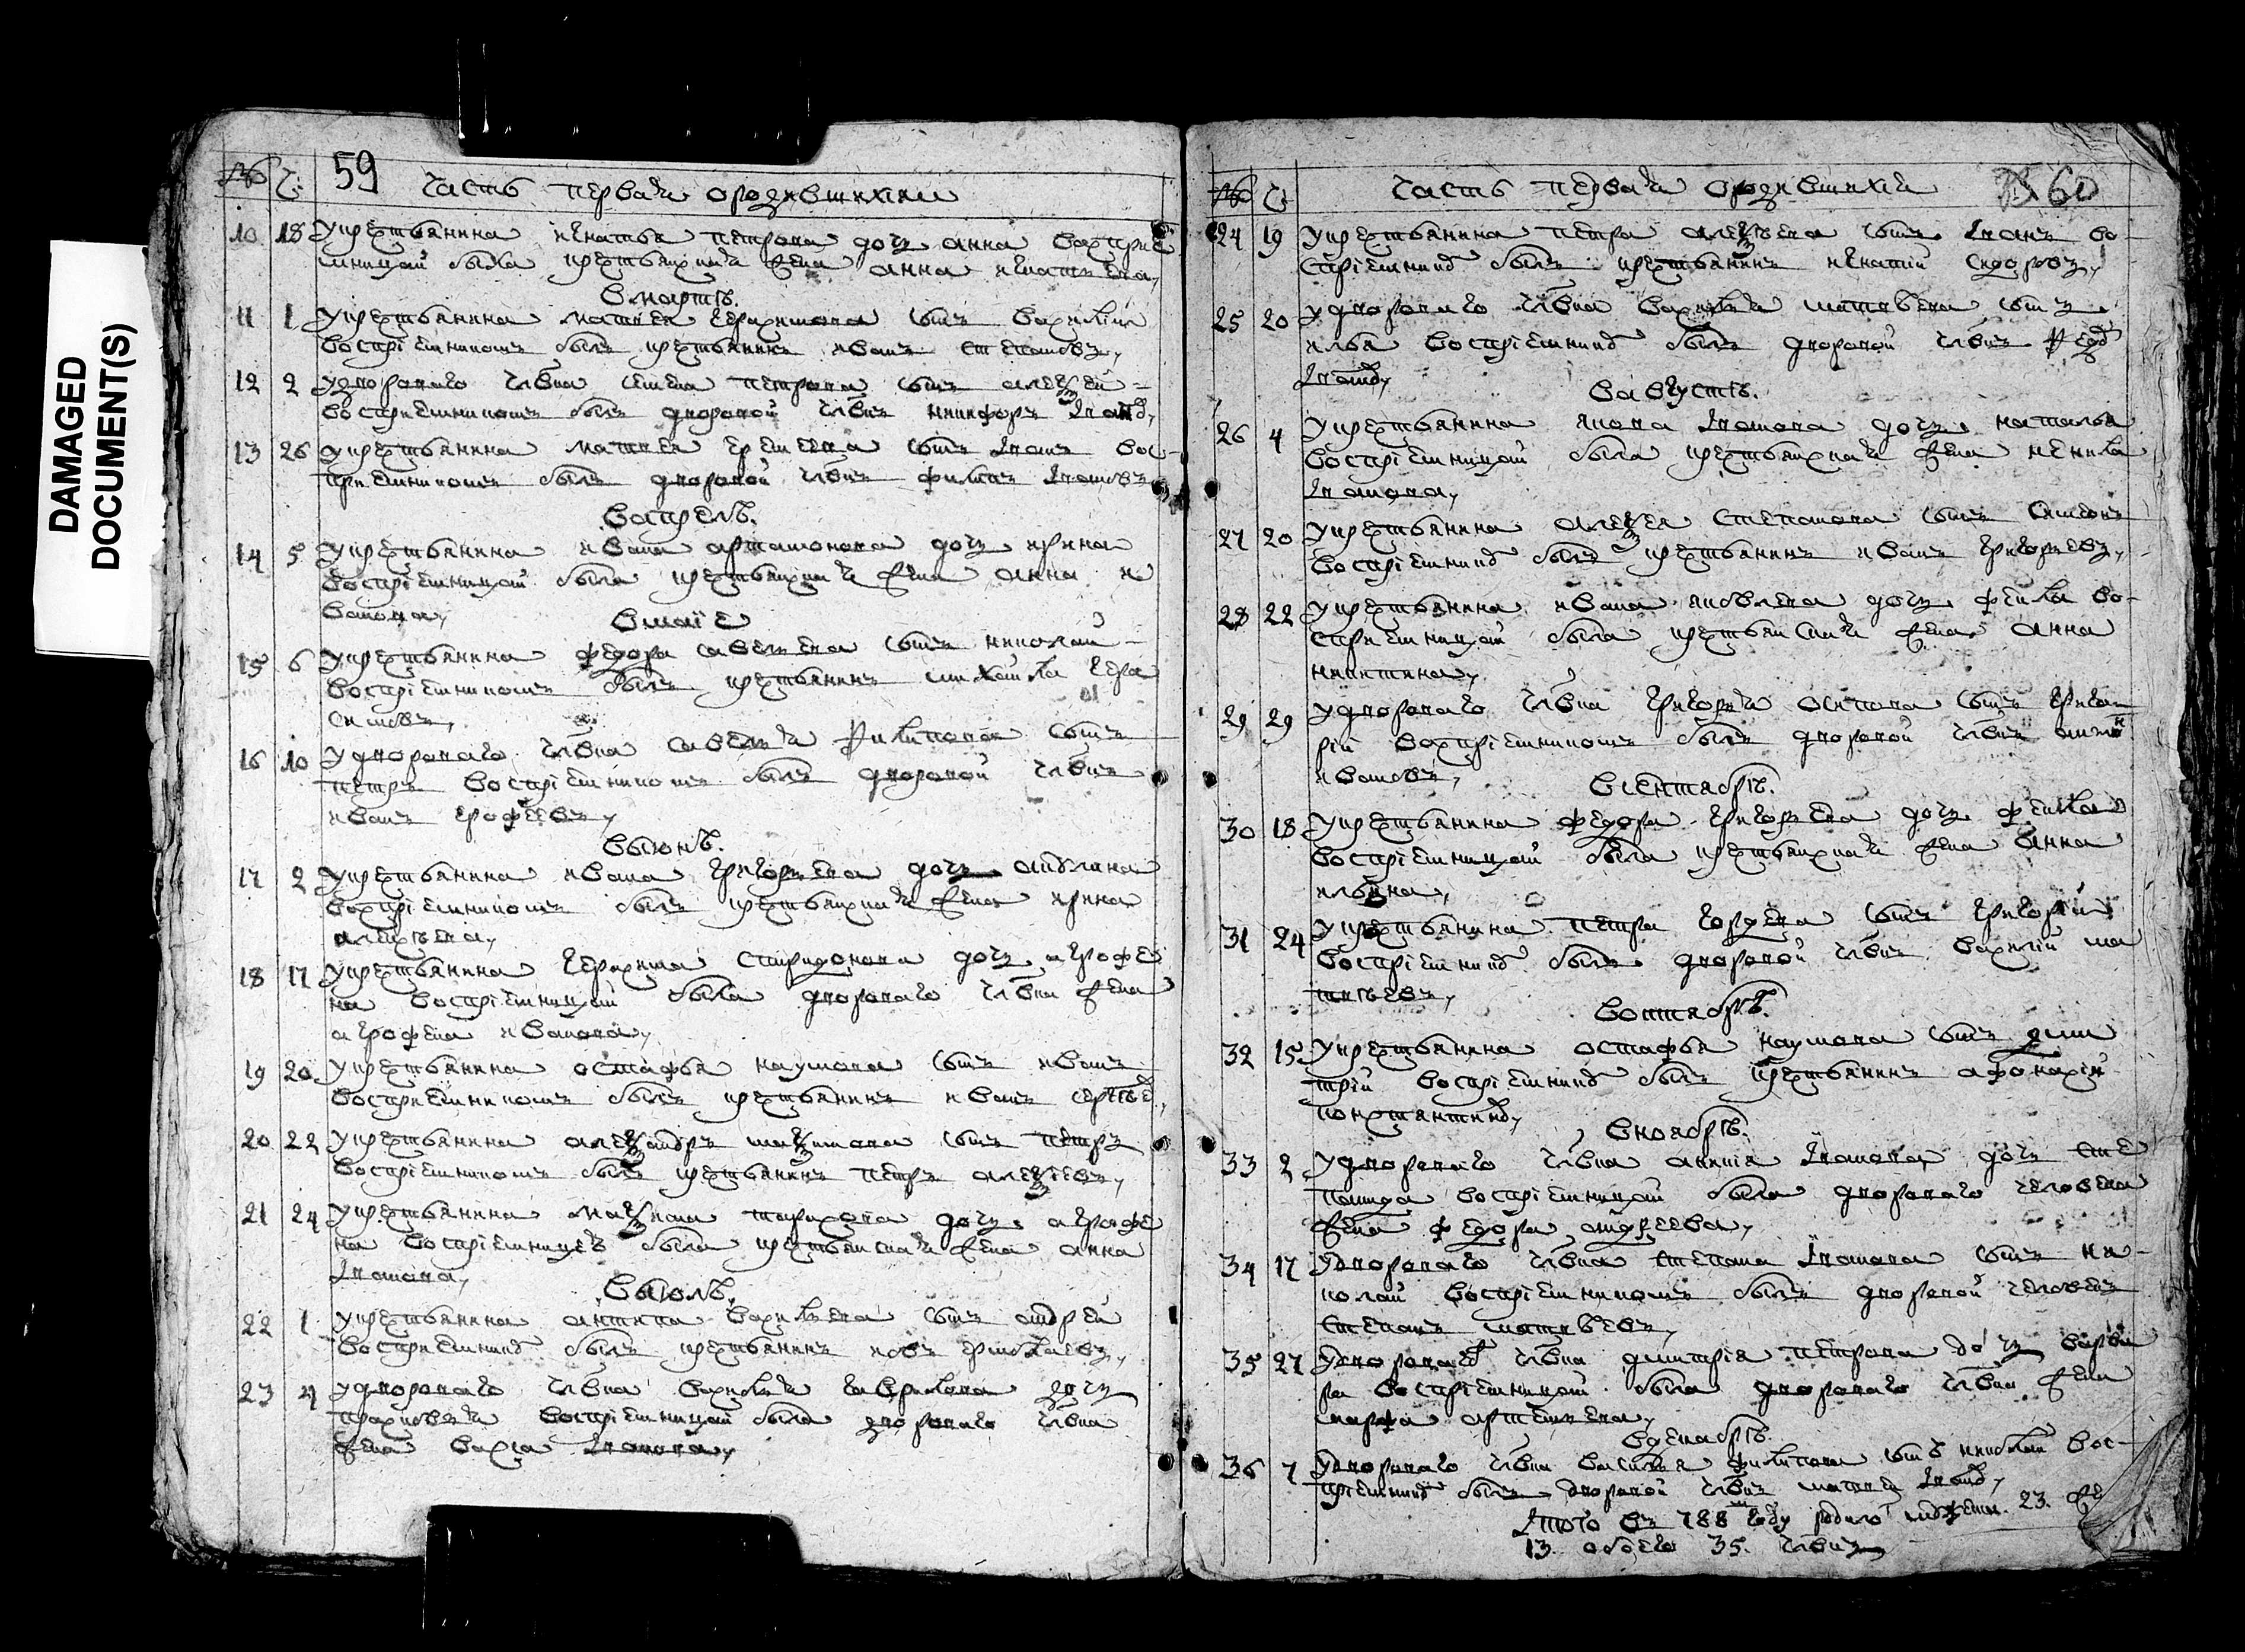 DAMAGED
DOCUMENT(S)
№ Ч: 59 Часть перьвая ородившихся
10 18 У крестьянина игнатья петрова дочь анна воспри
емницой была крестьянская жена анна игнатьева
в марте.
11 1 У крестьянина матвея герасимова сынъ василий
восприемникомъ былъ крестьянинъ иванъ степановъ,
12 2 У двороваго члвка семена петрова сынъ алексей
восприемникомъ былъ дворовой члвкъ никифоръ
13 26 У крестьянина матвея еремеева сынъ иванъ вос-
приемникомъ былъ дворовой члвкъ филипъ ивановъ
Вапреле.
14 5 У крестьянина ивана артамонова дочь ирина
восприемницой была крестьянская жена анна и
ванова,
Вмаіе
15 6 У крестьянина федора савельева сынъ николай
восприемникомъ былъ крестьянинъ михайла гера
симовъ,
16 10 У двороваго члвка савелья филипова сынъ
петръ восприемникомъ былъ дворовой члвкъ
иванъ ерофеевъ,
Виюне.
17 2 У крестьянина ивана григорьева дочь
восприемникомъ былъ крестьянская жена ирина
алексеева,
18 17 У крестьянина герасима спиридонова дочь агрофе
на восприемницой была двороваго члвка жена
агрофена иванова,
19 20 У крестьянина остафья наумова сынъ иванъ
восприемникомъ былъ крестьянинъ иванъ
20 22 У крестьянина александръ максимова сынъ петръ
восприемникомъ былъ крестьянинъ петръ алексеевъ,
21 24 У крестьянина максима тарасова дочь агрофе
на восприемницею была крестьянская жена анна
иванова,
Виюле.
22 1 У крестьянина антипа васильева сынъ андрей
восприемник былъ крестьянинъ
23 4 У двороваго члвка василья гаврилова дочь
прасковья восприемницой была двороваго члвка
жена васса иванова,
№ Ч: Часть перьвая ородившихся 60
24 19 У крестьянина петра алексеева сынъ иванъ во-
сприемник былъ крестьянинъ игнатий сидоровъ,
25 20 У двороваго члвка василья матвеева сынъ
илья восприемник былъ дворовой члвкъ федр
иванов,
Вавгусте.
26 4 У крестьянина якова иванова дочь наталья
восприемницой была крестьянская жена ненила
иванова,
27 20 У крестьянина алексея степанова сынъ симеонъ
восприемник былъ крестьянинъ иванъ григорьевъ,
28 22 У крестьянина ивана яковлева дочь фекла во-
сприемницой была крестьянская жена анна
никитина,
29 29 У двороваго члвка григорья осипова сынъ григо
рий восприемникомъ былъ дворовой члвкъ антон
ивановъ,
Всентябре.
30 18 У крестьянина федора григорьева дочь фекла
восприемницой была крестьянская жена анна
ильина,
31 24 У крестьянина петра гордеева сынъ григорий
восприемник былъ дворовой члвкъ василий ма
твеевъ,
Воктябре.
32 15 У крестьянина остафья наумова сынъ дми
трий восприемник былъ крестьянинъ афонасий
константинов,
Вноябре.
33 2 У двороваго члвка акима иванова дочь сте
панида восприемницой была двороваго человека
жена федора андреева,
34 17 У двороваго члвка степана иванова сынъ ни-
колай восприемникомъ былъ дворовой человекъ
степанъ матвеевъ,
35 27 У двороваго члвка дмитрия петрова дочь варва
ра восприемницой была двороваго члвка жена
марфа артемьева,
Вдекабре.
36 7 У двороваго члвка василья филипова сынъ николай вос-
приемник былъ дворовой члвкъ матвей иванов,
Итого въ 788 году родило 23.
13. обоего 35. члвкъ